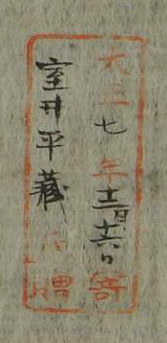 大正七年十二月十六日寄
室井平藏氏贈